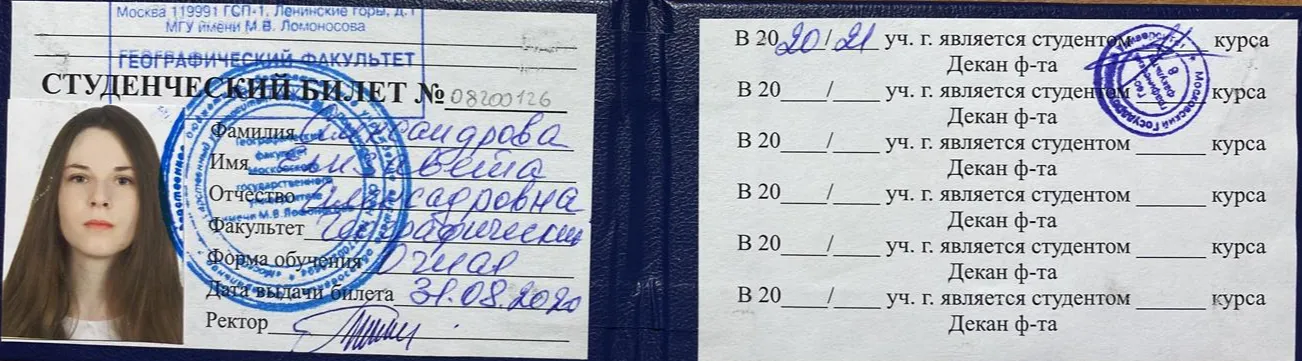 Москва 119991 ГСП-1, Ленинские горы, д.1
МГУ имени М.В. Ломоносова
ГЕОГРАФИЧЕСКИЙ ФАКУЛЬТЕТ
СТУДЕНЧЕСКИЙ БИЛЕТ № 08200126
Фамилия Александрова
Имя Елизавета
Отчество
Факультет Географический
Форма обучения Очная
Дата выдачи билета 31.08.2020
Ректор
Географический
факультет
Московского
государственного
университета
имени М.В. Ломоносова
В 2020/21 уч. г. является студентом курса
Декан ф-та
В 20____/____ уч. г. является студентом ______ курса
Декан ф-та
В 20____/____ уч. г. является студентом ______ курса
Декан ф-та
В 20____/____ уч. г. является студентом ______ курса
Декан ф-та
В 20____/____ уч. г. является студентом ______ курса
Декан ф-та
В 20____/____ уч. г. является студентом ______ курса
Декан ф-та
Московский Государ
Гео
графический
факуль
8